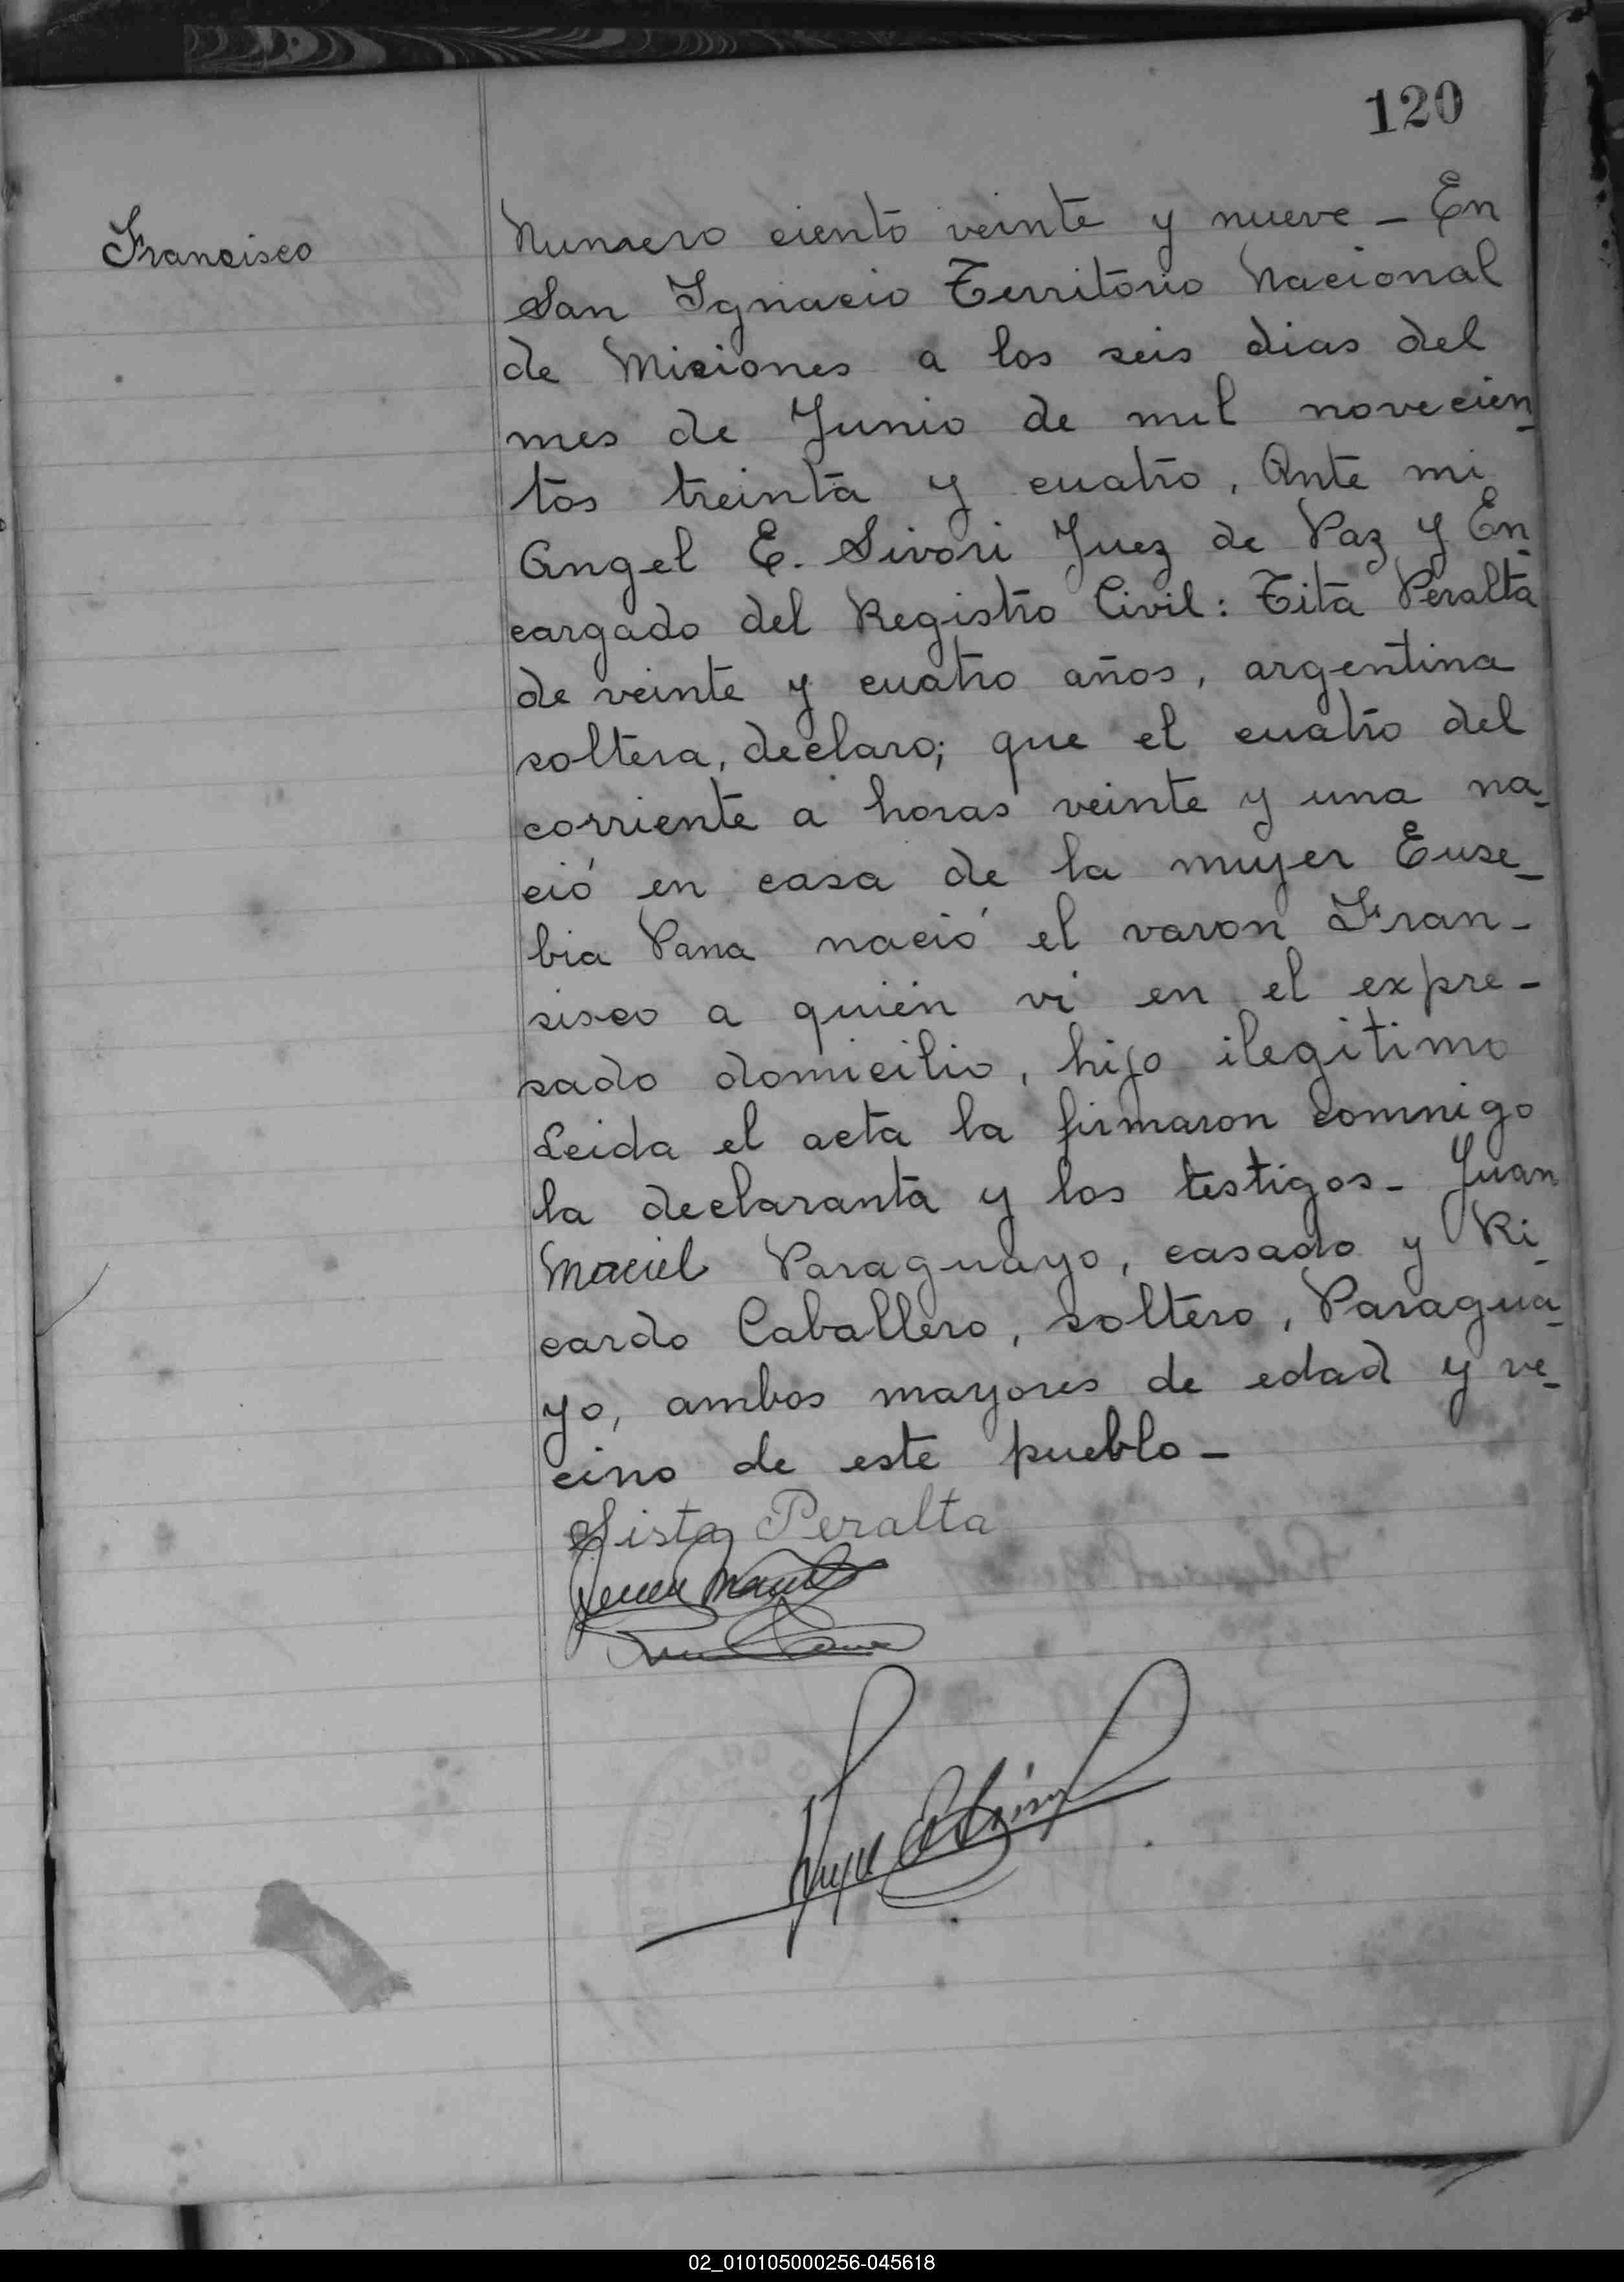 120
Francisco
Numero ciento veinte y nueve - En
San Ignacio Territorio Nacional
de Misiones a los seis dias del
mes de Junio de mil novecien-
tos treinta y cuatro, Ante mi
Angel E. Sivori Juez de Paz y En-
cargado del Registro Civil: Tita Peralta
de veinte y cuatro años, argentina
soltera, declaro; que el cuatro del
corriente a horas veinte y una na-
ció en casa de la mujer Euse-
bia Pana nació el varon Fran-
sisco a quien vi en el expre-
sado domicilio, hijo ilegitimo
Leida el acta la firmaron comnigo
la declaranta y los testigos - Juan
Maciel Paraguayo, casado y Ri-
cardo Caballero, soltero, Paragua-
yo, ambos mayores de edad y ve-
cino de este pueblo -
Sista Peralta
Juan Maciel
02_010105000256-045618